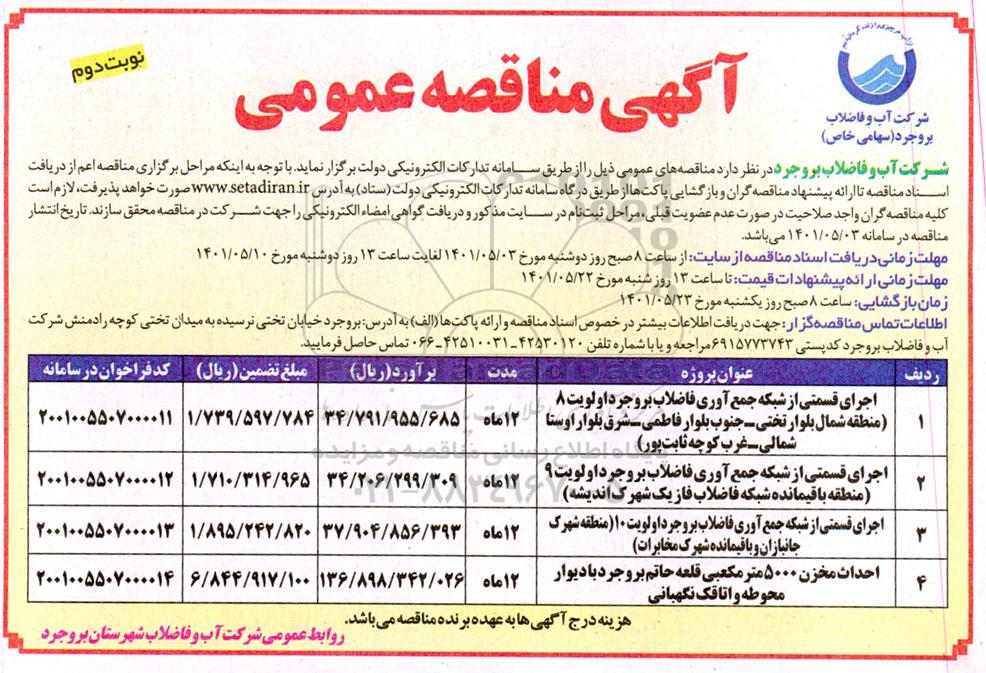 نوبت دوم
آگهی مناقصه عمومی
شرکت آب و فاضلاب
بروجرد(سهامی خاص)
شرکت آب و فاضلاب بروجرد در نظر دارد مناقصه های عمومی ذیل را از طریق سامانه تدارکات الکترونیکی دولت برگزار نماید. با توجه به اینکه مراحل برگزاری مناقصه اعم از دریافت
اسناد مناقصه تا ارائه پیشنهاد مناقصه گران و بازگشایی پاکت ها از طریق درگاه سامانه تدارکات الکترونیکی دولت (ستاد) به آدرس www.setadiran.ir صورت خواهد پذیرفت، لازم است
کلیه مناقصه گران واجد صلاحیت در صورت عدم عضویت قبلی، مراحل ثبت نام در سایت مذکور و دریافت گواهی امضاء الکترونیکی را جهت شرکت در مناقصه محقق سازند. تاریخ انتشار
مناقصه در سامانه ۱۴۰۱/۰۵/۰۳ می باشد.
مهلت زمانی دریافت اسناد مناقصه از سایت: از ساعت ۸ صبح روز دوشنبه مورخ ۱۴۰۱/۰۵/۰۳ لغایت ساعت ۱۳ روز دوشنبه مورخ ۱۴۰۱/۰۵/۱۰
مهلت زمانی ارائه پیشنهادات قیمت: تا ساعت ۱۳ روز شنبه مورخ ۱۴۰۱/۰۵/۲۲
زمان بازگشایی: ساعت ۸ صبح روز یکشنبه مورخ ۱۴۰۱/۰۵/۲۳
اطلاعات تماس مناقصه گزار: جهت دریافت اطلاعات بیشتر در خصوص اسناد مناقصه و ارائه پاکت ها (الف) به آدرس: بروجرد خیابان تختی نرسیده به میدان تختی کوچه رادمنش شرکت
آب و فاضلاب بروجرد کدپستی ۶۹۱۵۷۷۳۷۴۳ مراجعه و یا با شماره تلفن ۴۲۵۳۰۱۲۰-۴۲۵۱۰۰۳۱-۰۶۶ تماس حاصل فرمایید.
ردیف عنوان پروژه مدت برآورد(ریال) مبلغ تضمین (ریال) کدفراخوان در سامانه
۱ اجرای قسمتی از شبکه جمع آوری فاضلاب بروجرد اولویت ۸
(منطقه شمال بلوار تختی-جنوب بلوار فاطمی-شرق بلوار اوستا
شمالی-غرب کوچه ثابت پور) ۱۲ماه ۳۴/۷۹۱/۹۵۵/۶۸۵ ۱/۷۳۹/۵۹۷/۷۸۴ ۲۰۰۱۰۰۵۵۰۷۰۰۰۰۱۱
۲ اجرای قسمتی از شبکه جمع آوری فاضلاب بروجرد اولویت ۹
(منطقه باقیمانده شبکه فاضلاب فاز یک شهرک اندیشه) ۱۲ماه ۳۴/۲۰۶/۲۹۹/۳۰۹ ۱/۷۱۰/۳۱۴/۹۶۵ ۲۰۰۱۰۰۵۵۰۷۰۰۰۰۱۲
۳ اجرای قسمتی از شبکه جمع آوری فاضلاب بروجرد اولویت ۱۰(منطقه شهرک
جانبازان و باقیمانده شهرک مخابرات) ۱۲ماه ۳۷/۹۰۴/۸۵۶/۳۹۳ ۱/۸۹۵/۲۴۲/۸۲۰ ۲۰۰۱۰۰۵۵۰۷۰۰۰۰۱۳
۴ احداث مخزن ۵۰۰۰ متر مکعبی قلعه حاتم بروجرد با دیوار
محوطه و اتاقک نگهبانی ۱۲ماه ۱۳۶/۸۹۸/۳۴۲/۰۲۶ ۶/۸۴۴/۹۱۷/۱۰۰ ۲۰۰۱۰۰۵۵۰۷۰۰۰۰۱۴
هزینه درج آگهی ها به عهده برنده مناقصه می باشد.
روابط عمومی شرکت آب و فاضلاب شهرستان بروجرد
پایگاه اطلاع رسانی مناقصه و مزایده